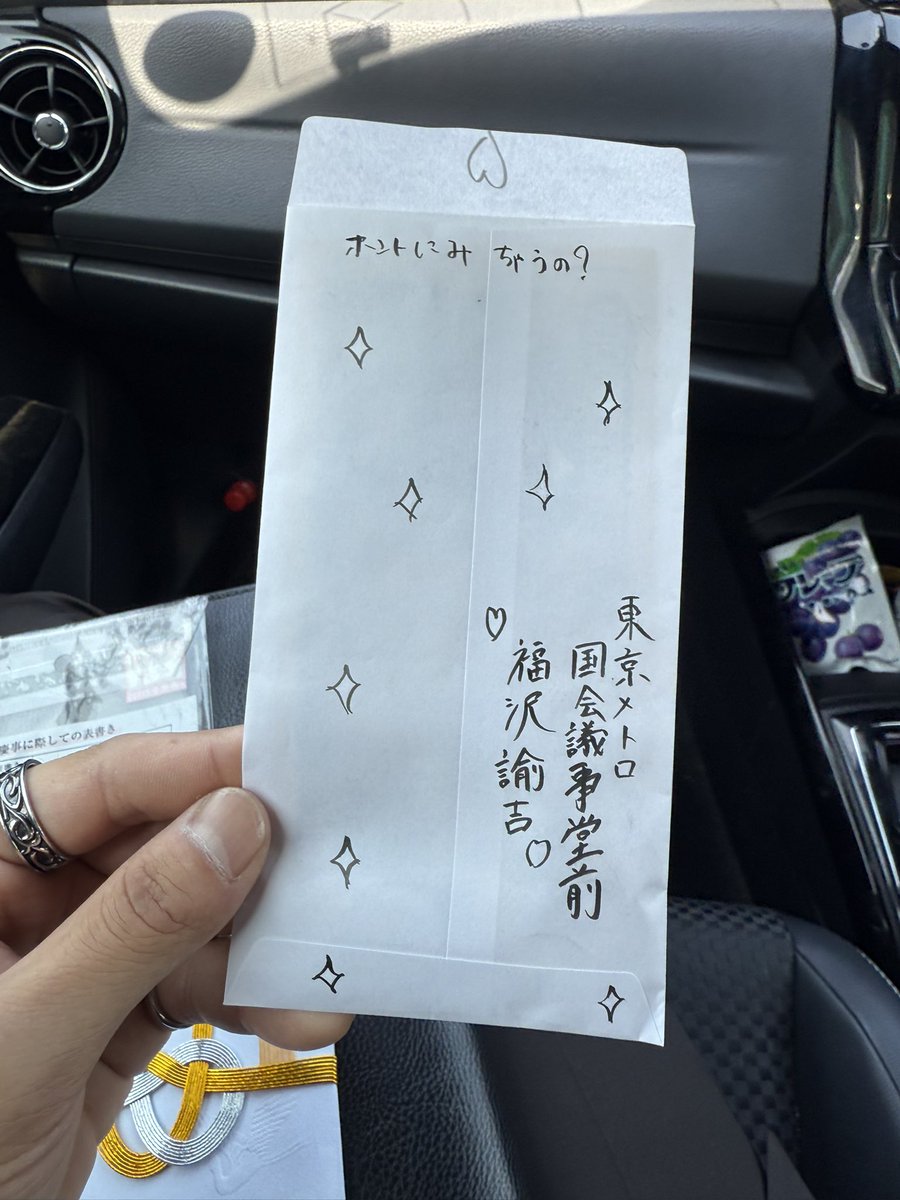 ホントにみちゃうの?
東京メトロ
国会議事堂前
♡福沢諭吉♡
慶事に際しての表書き
グレープ